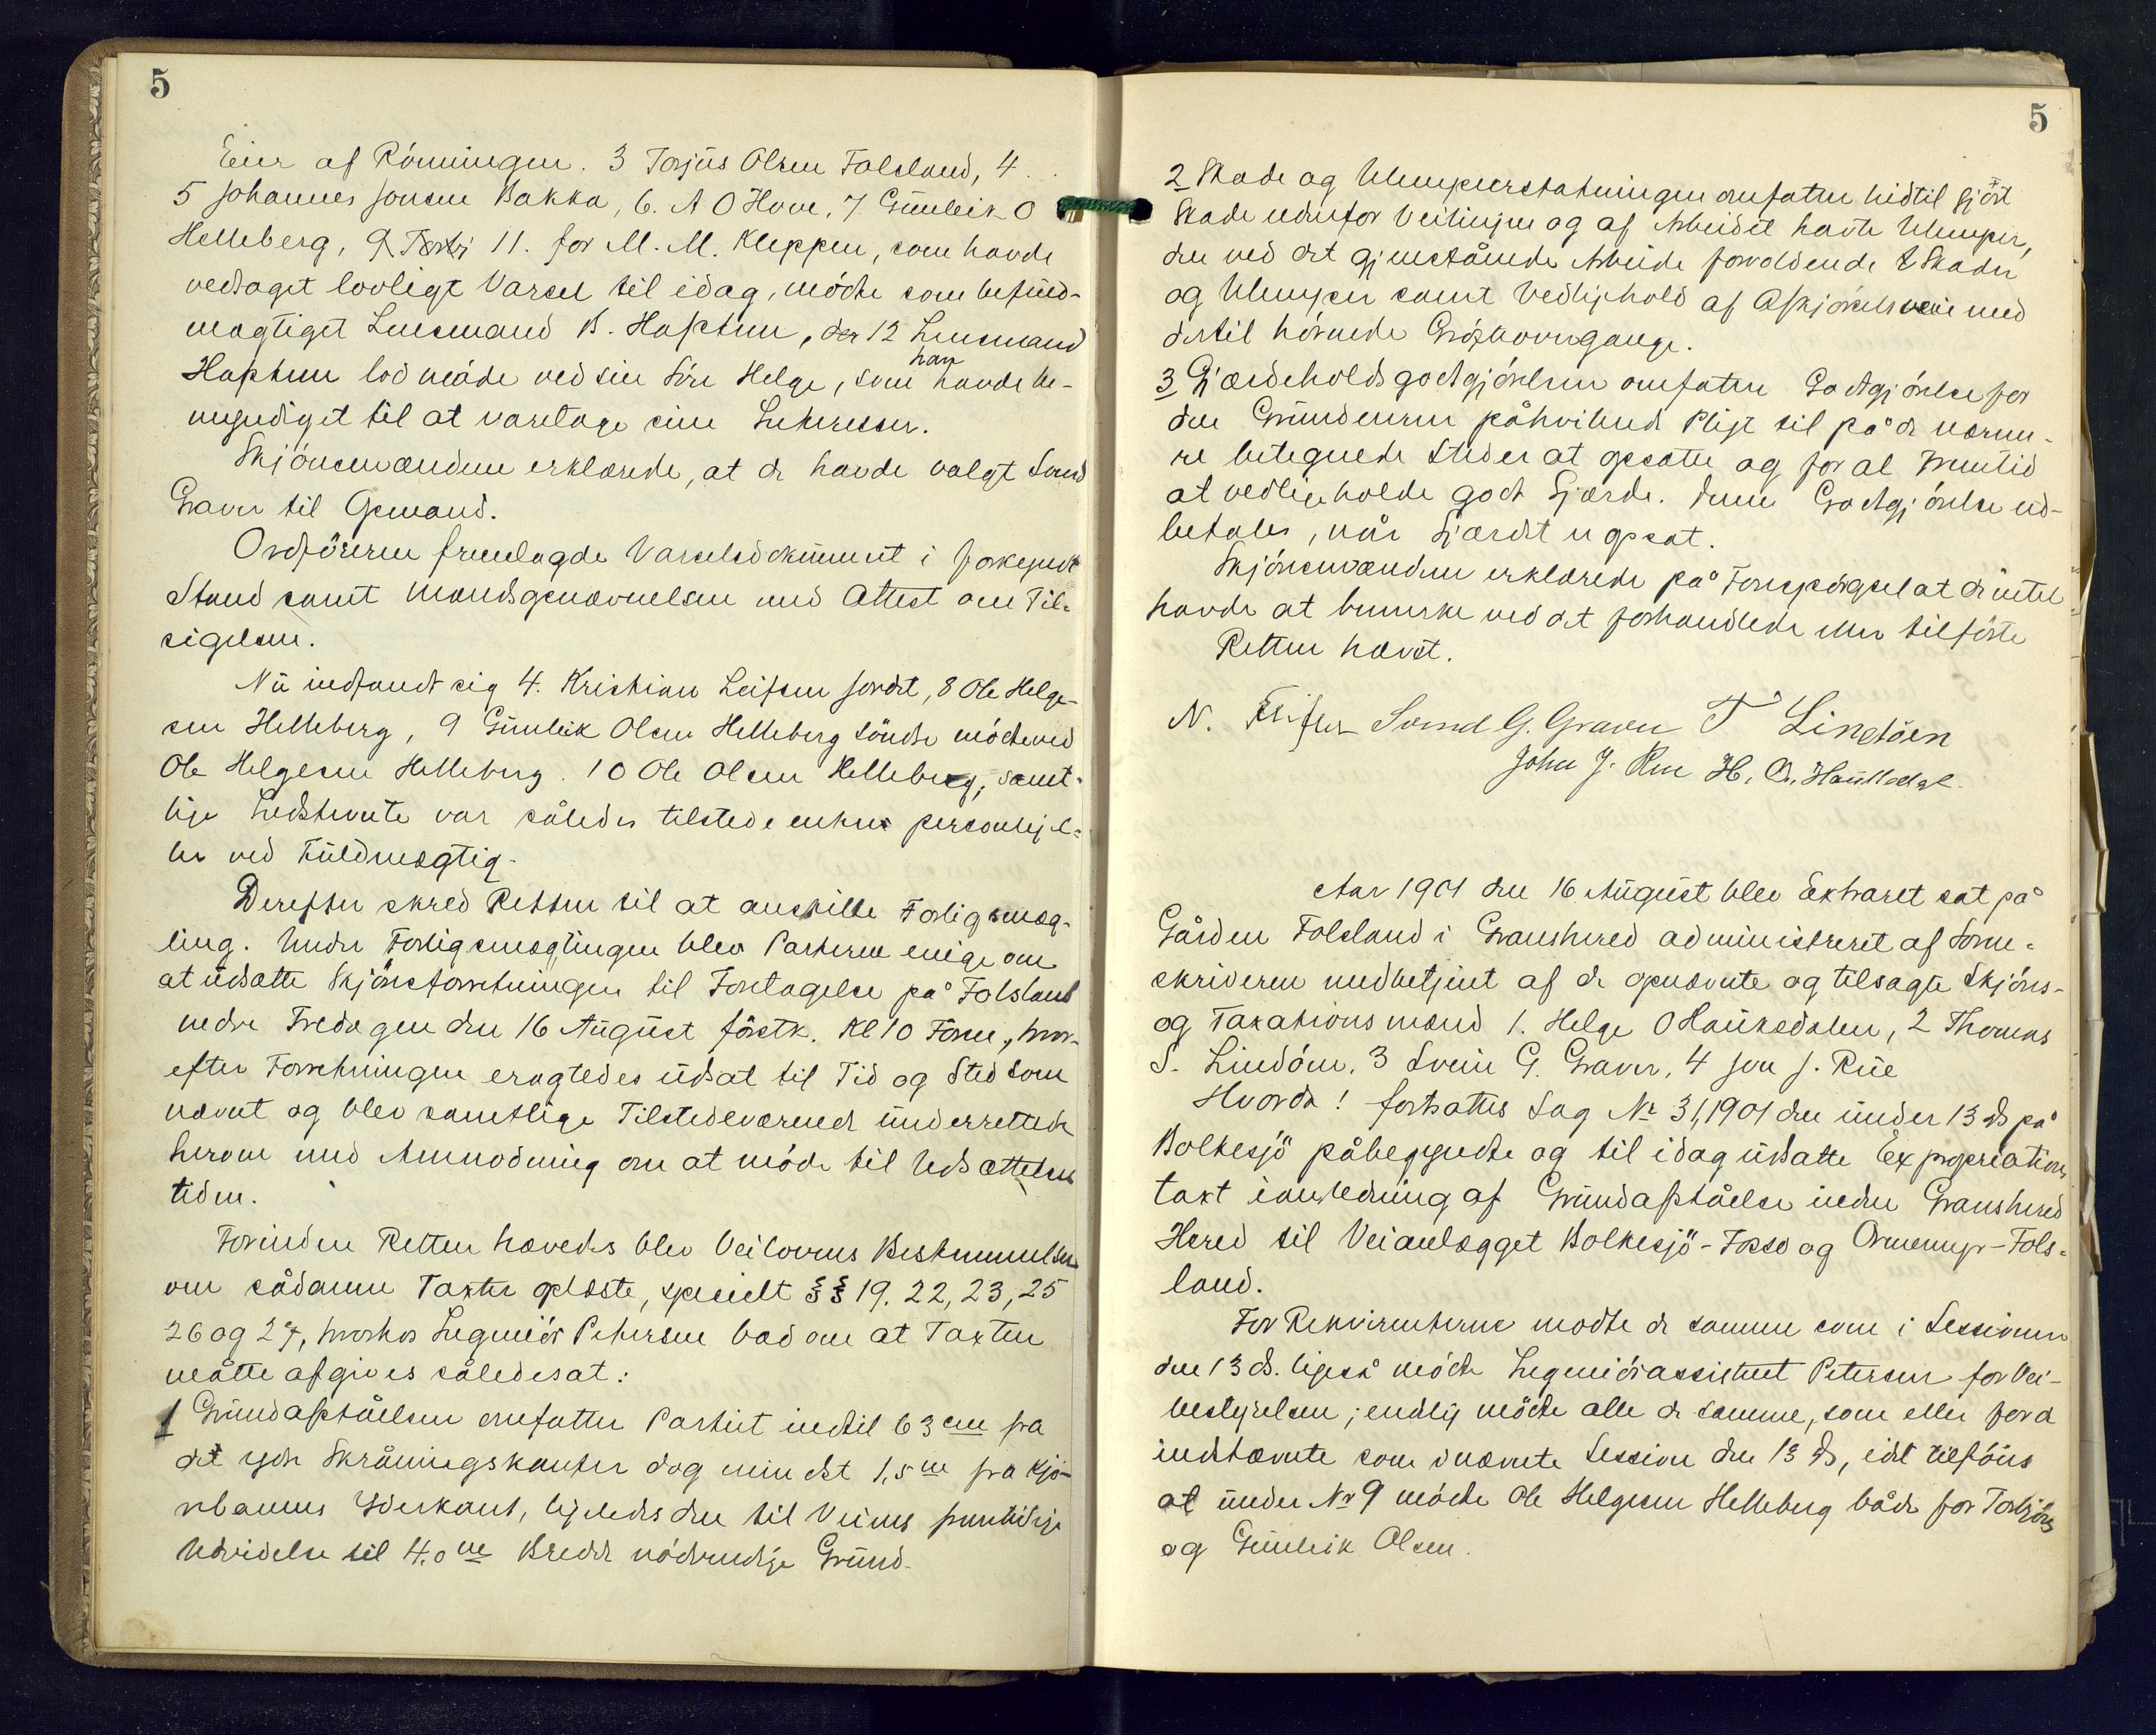 5
Eier af Rönningen. 3 Torjus Olsen Folsland, 4 . .
5 Johannes Jonsen Bakka, 6. A O Hove, 7 Gunleik O
Helleberg, 9 11. for M. M. Kleppen, som havde
vedtaget lovligt Varsel til idag, mödte som befuld-
mægtiget Lensmand B. Haptun, der 12 Lensmand
Haptun lod möde ved sin Sön Helge, som han havde be-
myndiget til at varetage sine Interesser.
Skjönsmændene erklærede, at de havde valgt Svend
Graver til Opmand.
Ordföreren fremlagde Varselsdokument i forkyndt
Stand samt Mandsopnævnelsen med Attest om Til-
sigelsen.
Nu indfandt sig 4. Kristian Leifsen Jordet, 8 Ole Helge-
sen Helleberg, 9 Gunleik Olsen Helleberg Söndre mödte ved
Ole Helgesen Helleberg. 10 Ole Olsen Helleberg, samt-
lige Indstevnte var således tilstede enten personligel-
ler ved Fuldmægtig.
Derefter skred Retten til at anstille Forligsmæg-
ling. Under Forligsmæglingen blev Parterne enige om
at udsætte Skjönsforretningen til Foretagelse på Folsland
nedre Fredagen den 16 August förstk. Kl 10 Form., hvor-
efter Forretningen eragtedes udsat til Tid og Sted som
nævnt og blev samtlige Tilstedeværende underrettede
herom med Anmodning om at möde til Udsættelses
tiden.
Forinden Retten hævedes blev Veilovens Bestemmelser
om sådanne Taxter oplæste, specielt §§ 19. 22, 23, 25
26 og 27, hvorhos Ingeniör Petersen bad om at Taxten
måtte afgives således at:
1 Grundafståelsen omfatter Partiet indtil 63 cm fra
det ydre Skråningskanter dog mindst 1,5 m fra Kjö-
rebanens Yderkant, ligeledes den til Veiens fremtidige
Udvidelse til 4.0 m Bredde nödvendige Grund.
5
2 Skade og Ulempeerstatningen omfatter hidtil gjört
Skade udenfor Veilinjen og af Arbeidet havte Ulemper,
den ved det gjenstående Arbeide forvoldende Skader
og Ulemper samt Vedligehold af Afkjörselsveie med
dertil hörende Gröfteovergange.
3 Gjærdeholdsgodtgjörelsen omfatter Godtgjörelse for
den Grundeieren påhvilende Pligt til på de nærme-
re betegnede Steder at opsætte og for al Fremtid
at vedligeholde godt Gjærde. Denne Godtgjörelse ud-
betales, når Gjærdet er opsat.
Skjönsmændene erklærede på Forespörgsel at de intet
havde at bemerke ved det forhandlede eller tilförte
Retten hævet.
N. Svend G. Graver T Lindöen
John J. Rue H. O. Haukedal.
Aar 1901 den 16 August blev Extraret sat på
Gården Folsland i Gransherred administreret af Soren-
skriveren medbetjent af de opnævnte og tilsagte Skjöns-
og Taxationsmænd 1. Helge O Haukedalen, 2 Thomas
S. Lindöen, 3 Svein G. Graver, 4 Jon J. Rue
Hvorda! fortsattes Sag No 31,1901 den under 13 ds på
Bolkesjö påbegyndte og til idag udsatte Expropriations
taxt i anledning af Grundafståelse inden Gransherred
Hered til Veianlægget Bolkesjö-Fosso og Ormemyr-Fols-
land.
For Rekvirenterne mödte de samme som i Sessionen
den 13 ds. ligeså mödte Ingeniörassistent Petersen for Vei-
bestyrelsen; endlig mödte alle de samme, som eller for de
indstævnte som i nævnte Session den 13 ds, idet tilföies
at under No 9 mödte Ole Helgesen Helleberg både for Torbjörn
og Gunleik Olsen.